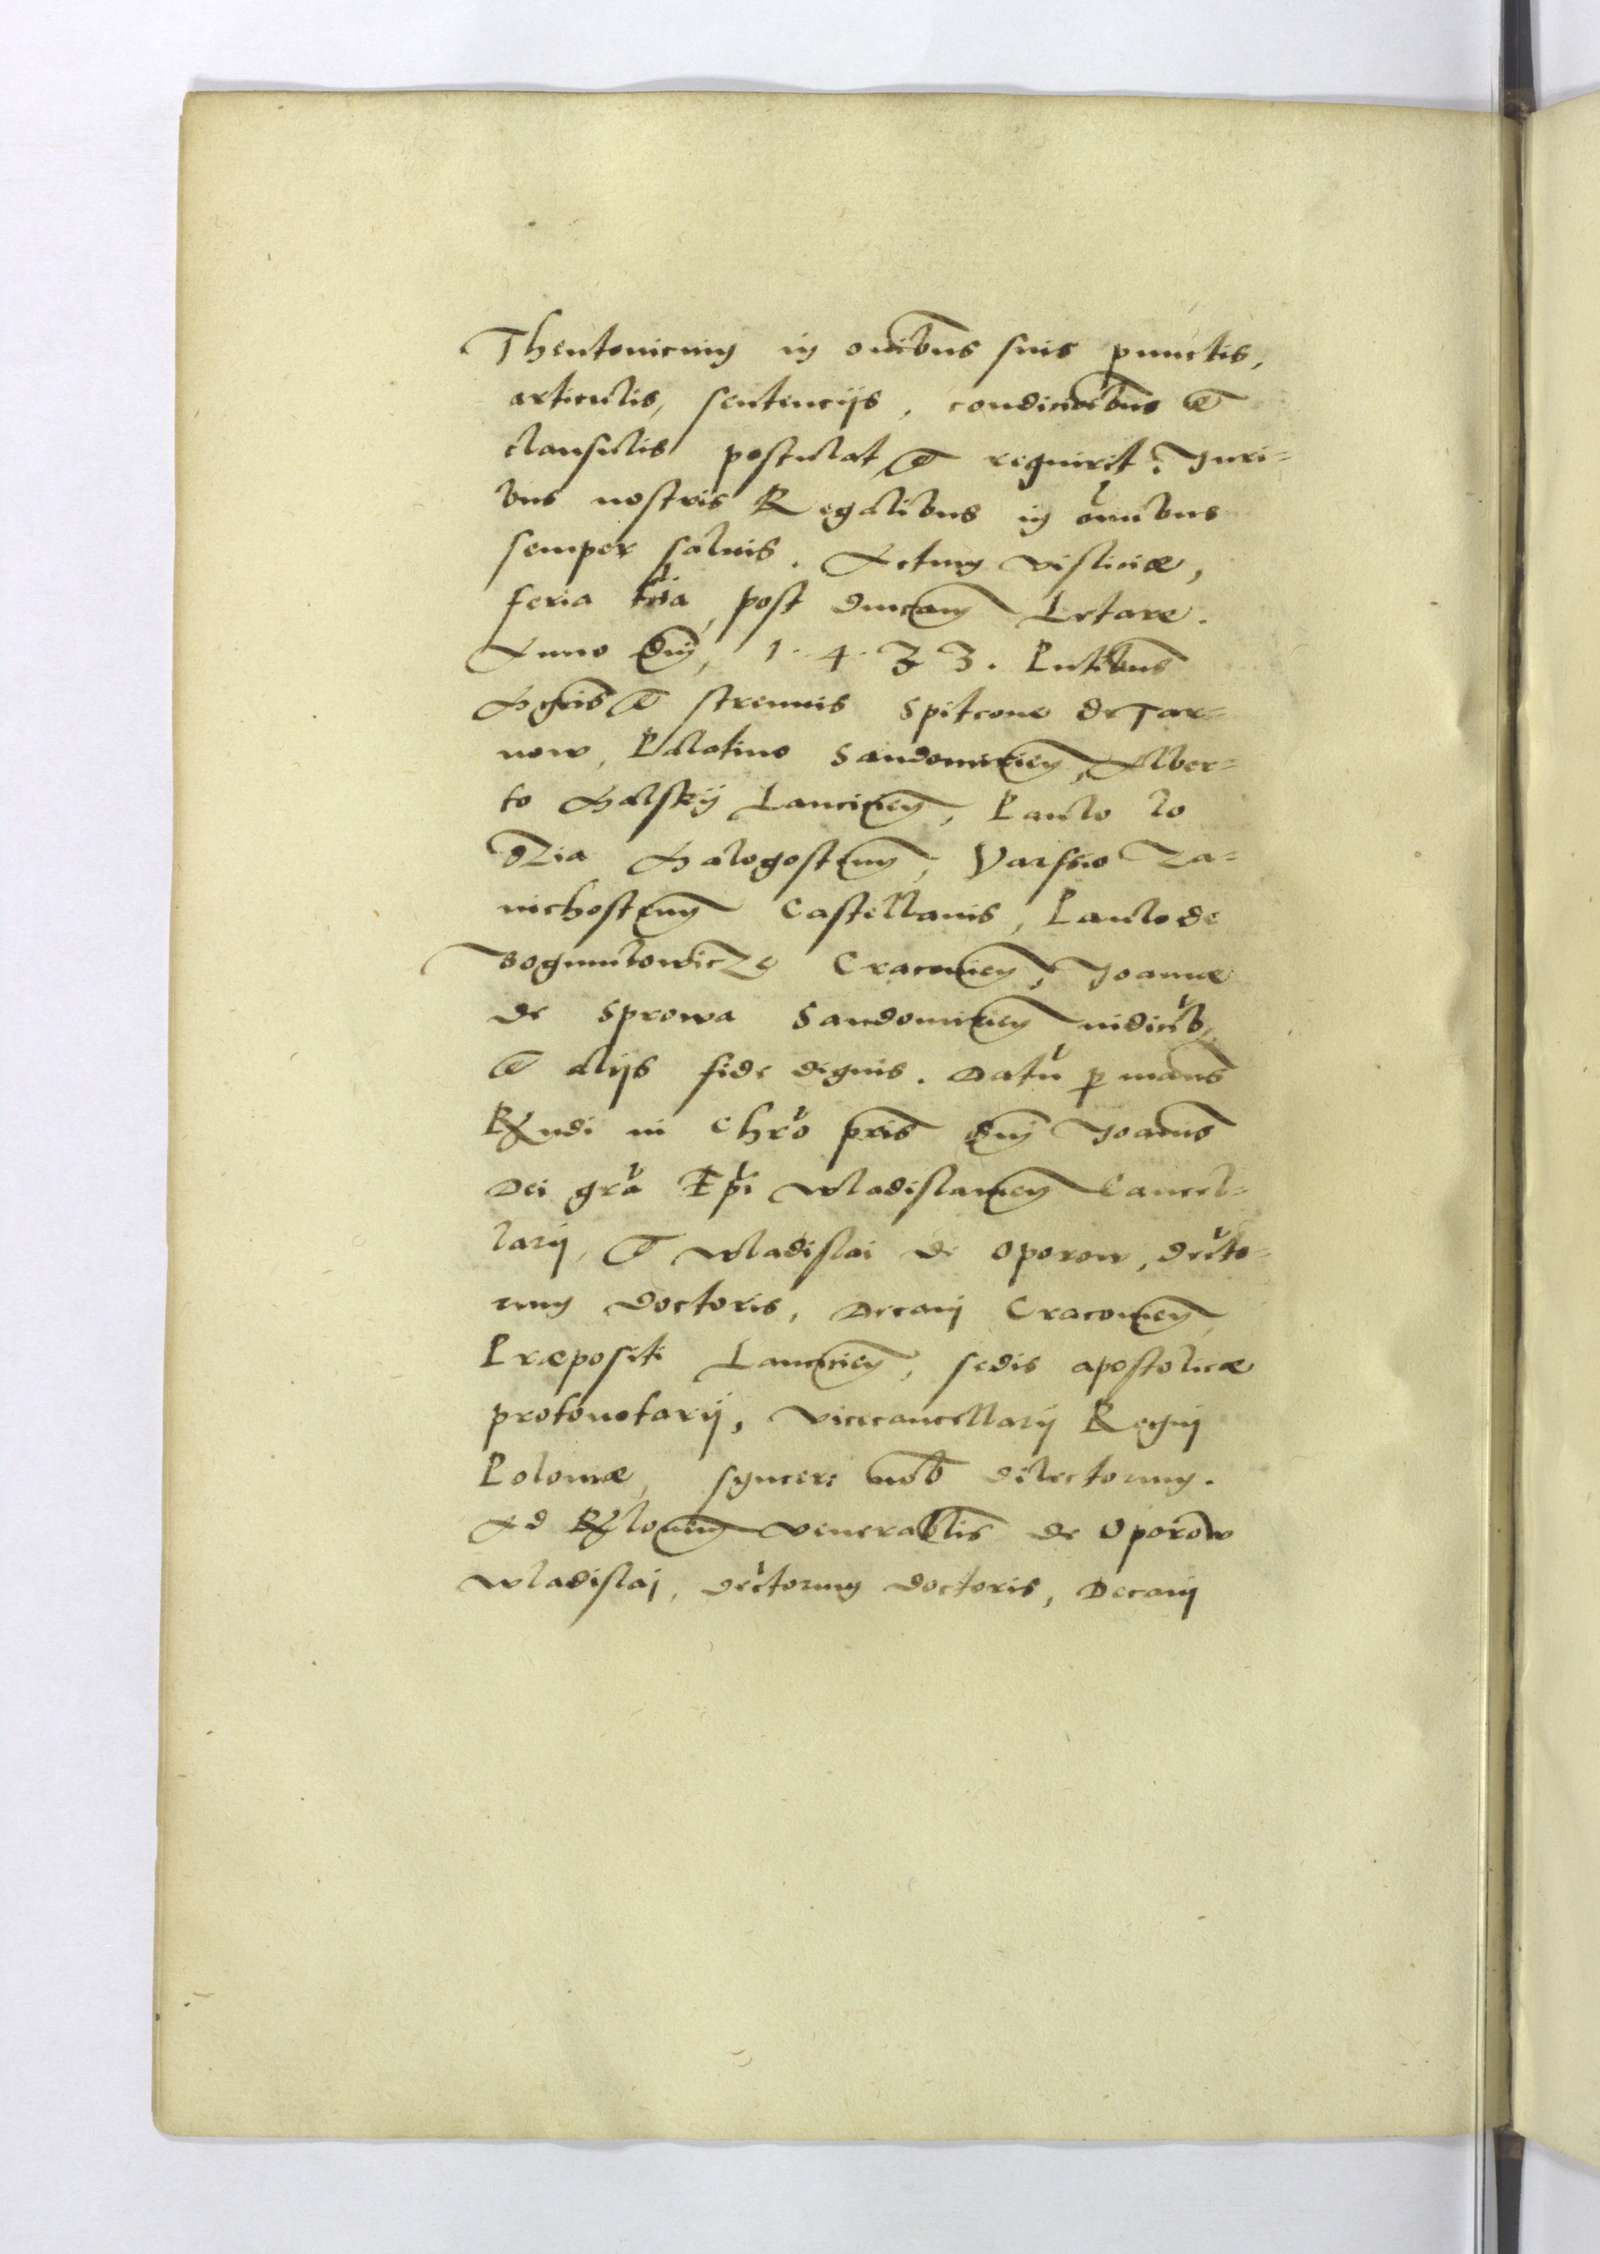 Theutonicum in oni̅bus suis punctis,
articulis, sentencijs, condicioi̅bus et
clausulis postulat et requirit. Juri=
bus nostris Regalibus in omnibus
semper saluis. Actum visliciæ,
feria tr̅ia post dni̅cam Letare.
Anno dni̅, 1.4.33. Pn̅tibus
Mgn̅is et strenuis Spitcone de Tar=
now, Palatino Sandomirien̅, Alber=
to Malskij Lancicien̅, Paulo lo
dzia Malogosten̅, Varssio Za=
uichosten̅ Castellanis, Paulo de
Bogumilowicze Cracouien̅, Joanne
de Sprowa Sandomirien̅ iudicib,
et alijs fide dignis. Datu̅ p̱ man̅s
Rndi in Chro̅ pri̅s dni̅ Joan̅is
Dei gra̅ Epi̅ Wladislauien̅ Cancel=
larij, et Wladislai de Oporow, decre̅to=
rum doctoris, Decani Cracouien̅,
Præpositi Lancicien̅, sedis apostolicæ
protonotarij, vicecancellarij Regni
Poloniæ, syncere nob̅ dilectorum.
Ad Rl̅onem venerabl̅is de Oporow
Wladislaj, decre̅torum doctoris, Decani